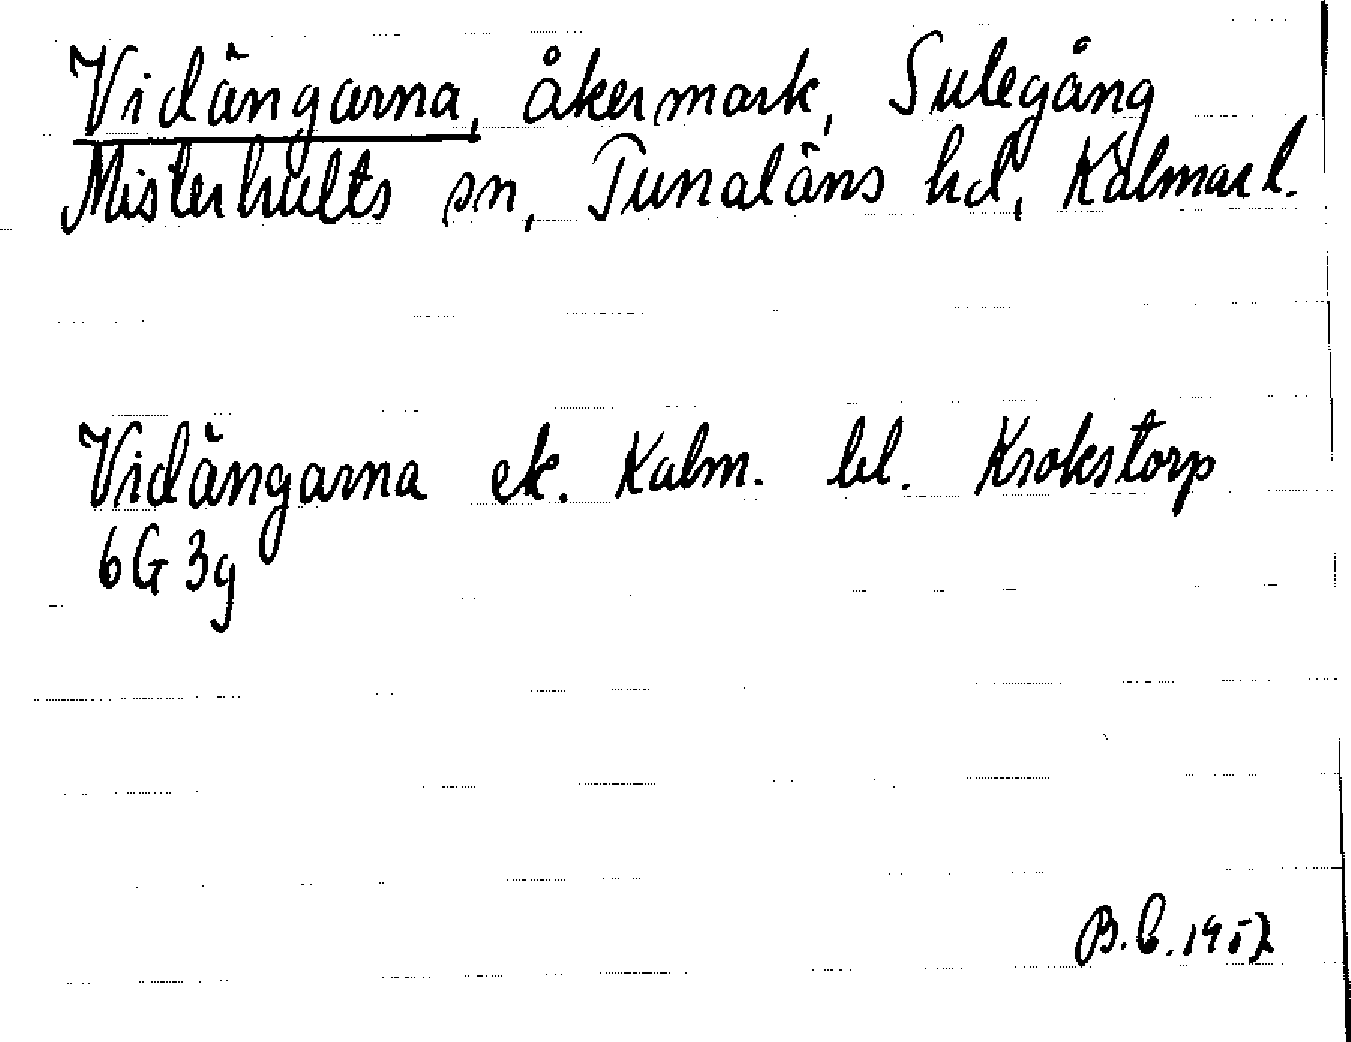 Vidängarna, åkermark, Sulegång
Misterhults sn, Tunaläns hd, Kalmar l.
Vidängarna ek. Kalm. bl. Krokstorp
6G 3g
B.C. 1957